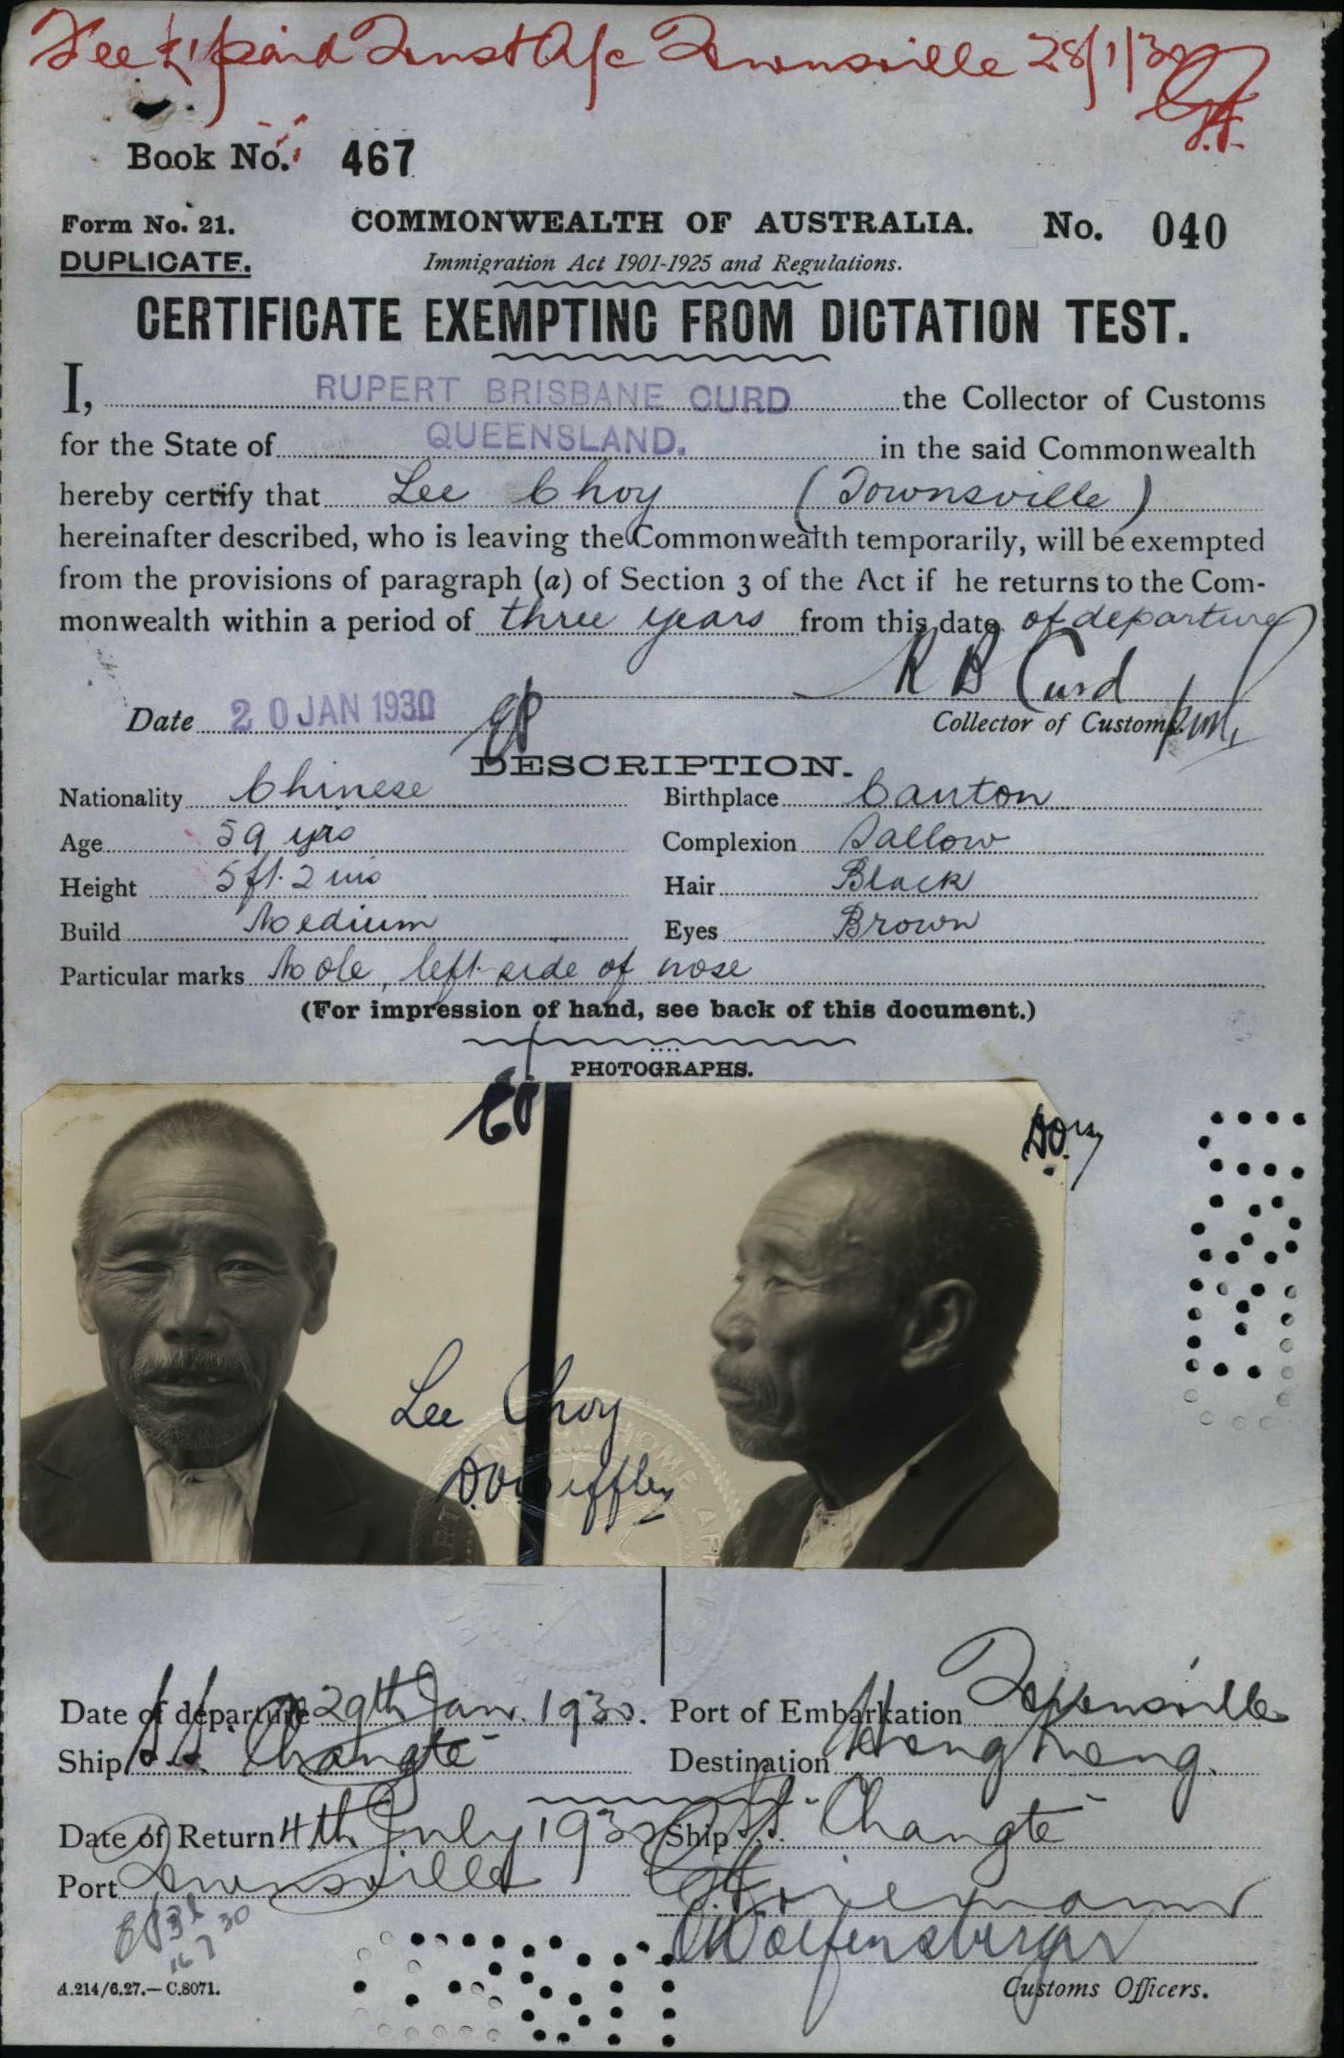 Fee £1 paid Trust A/c Townsville 28/1/30
Book No. 467
Form No. 21. COMMONWEALTH OF AUSTRALIA. No. 040
DUPLICATE. Immigration Act 1901-1925 and Regulations.
CERTIFICATE EXEMPTING FROM DICTATION TEST.
I, RUPERT BRISBANE CURD the Collector of Customs
for the State of QUEENSLAND. in the said Commonwealth
hereby certify that Lee Choy (Townsville)
hereinafter described, who is leaving the Commonwealth temporarily, will be exempted
from the provisions of paragraph (a) of Section 3 of the Act if he returns to the Com-
monwealth within a period of three years from this date of departure
R B Curd
Date 20 JAN 1930 Collector of Customs.
DESCRIPTION.
Nationality Chinese Birthplace Canton
Age 59 yrs Complexion Sallow
Height 5 ft. 2 ins Hair Black
Build Medium Eyes Brown
Particular marks Mole, left side of nose
(For impression of hand, see back of this document.)
PHOTOGRAPHS.
Lee Choy
Date of departure 29th Jan. 1930. Port of Embarkation Townsville
Ship S.S. Changte Destination Hong Kong.
Date of Return 4th July 1930 Ship S.S. Changte
Port Townsville
16 7 30
A.214/6.27.—C.8071. Customs Officers.